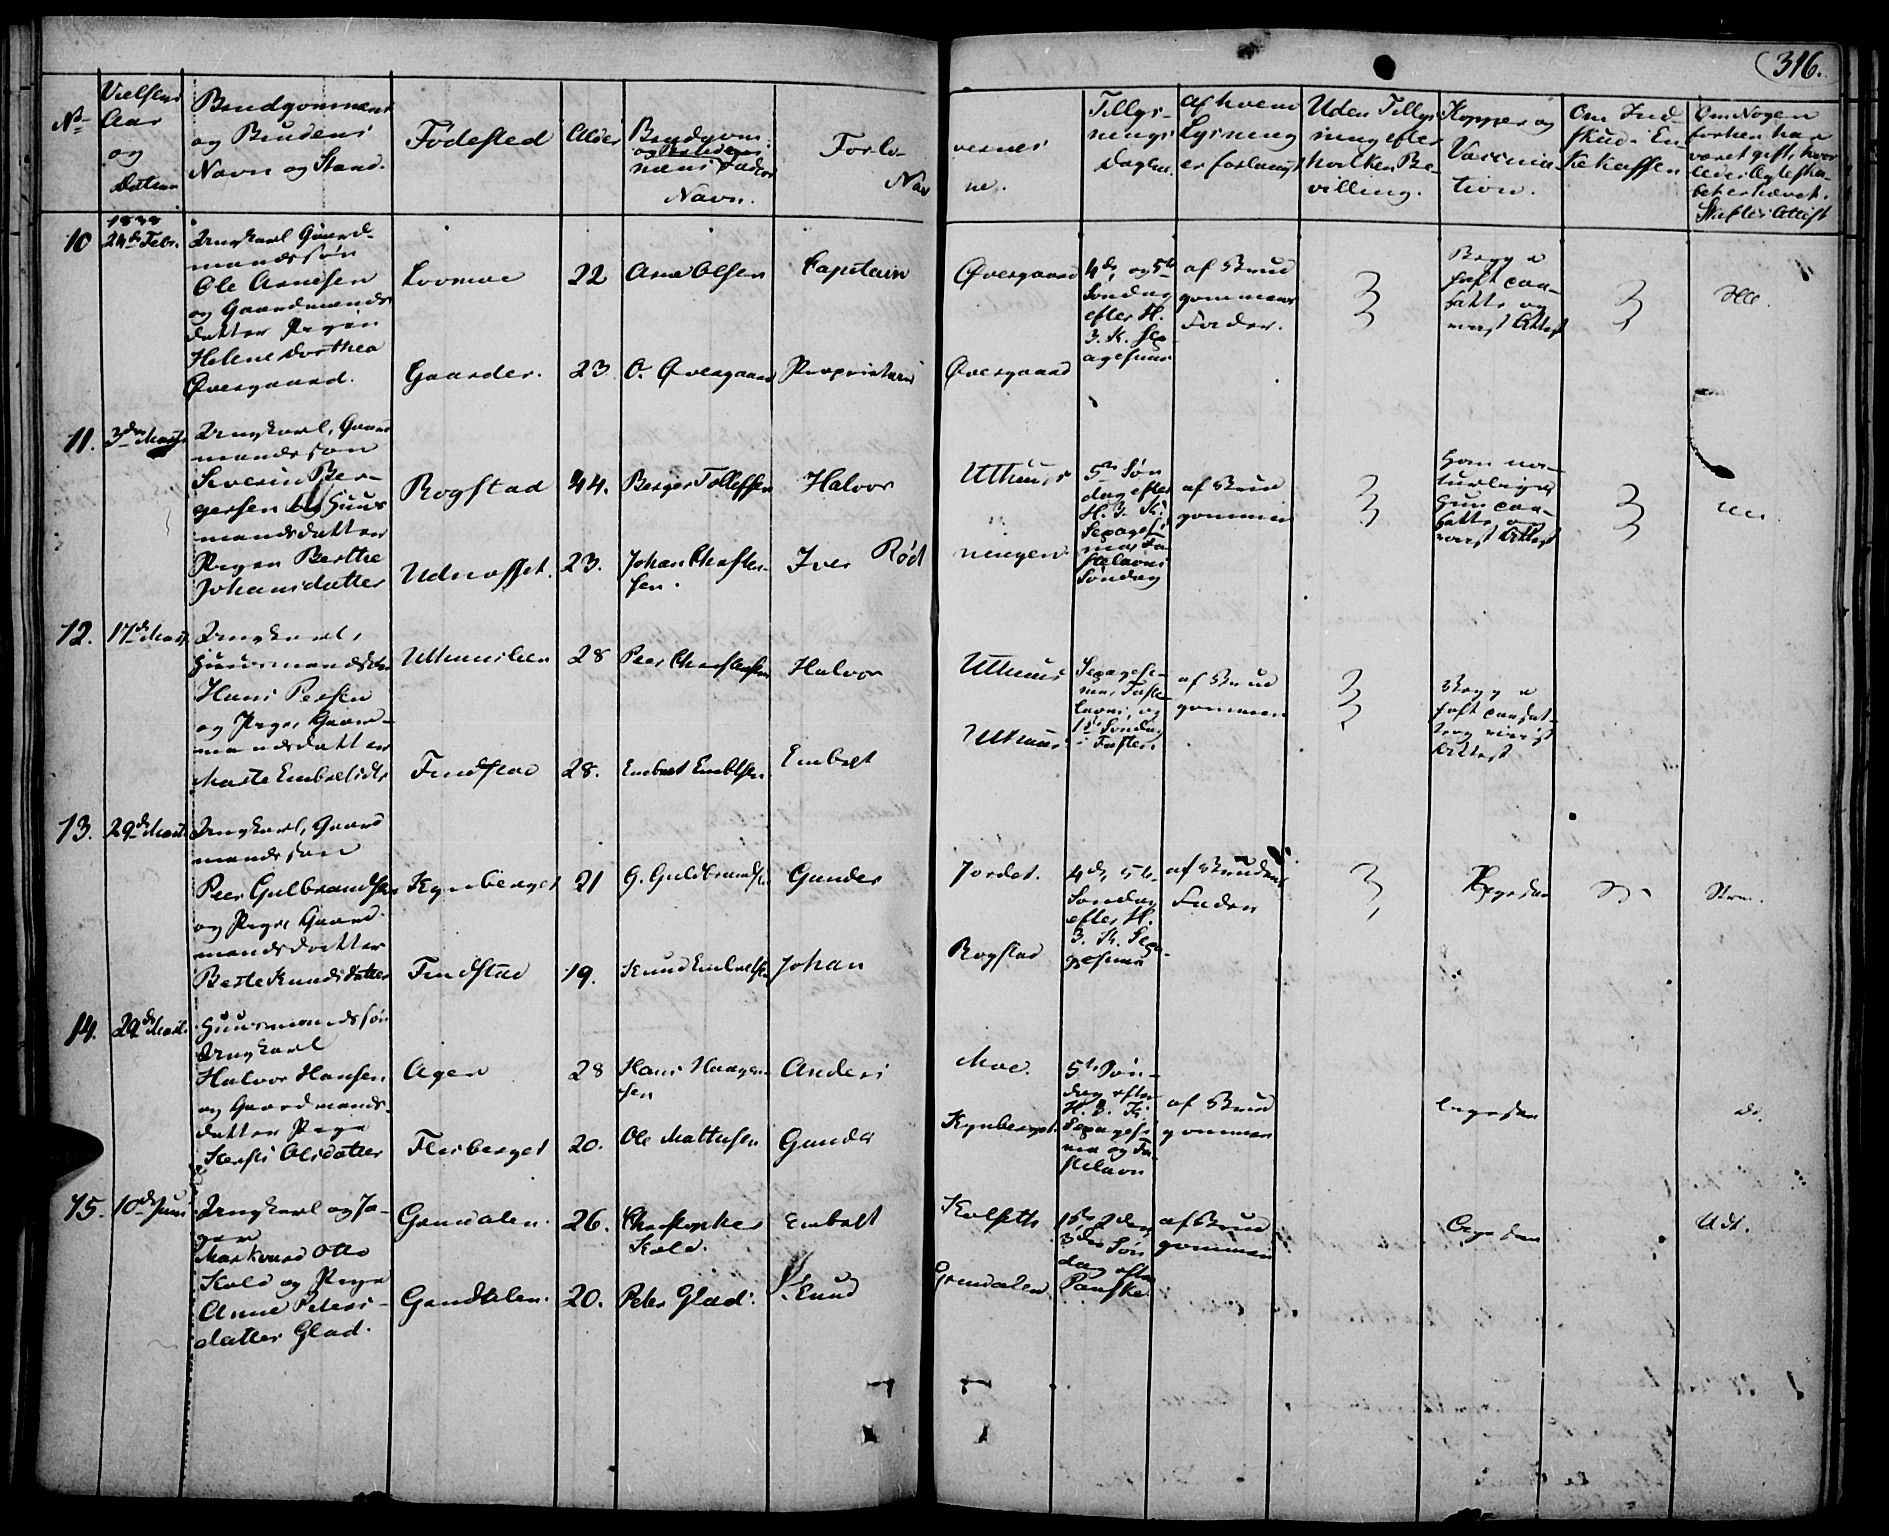 316.
No
Vielses
Aar
og
Datum
Brudgommens
og Brudens
Navn og Stand.
Fødested
Alder
Brudgom-
og Brudens
mens Fader
Navn.
Forlo-
Nav
vernes
ne.
Tillys-
nings
Dagene.
Af hvem
Lysning
er forlangt
Uden Tillys
ning efter
hvilken Be-
villing.
Kopper og
Vaccina-
tion.
Om Ind-
skud i En-
kekassen
Om Nogen
forhen har
været gift, hvor
ledes Ægteska-
bet er hævet.
Skiftes Attest
10
24de Febr.
Ungkarl Gaard-
mandssøn
Ole Arnesen
og Gaardmands
datter Pigen
Helene Dorthea
Øvergaard.
Lovmoe
22
Arne Olsen
Capitain
Øvergaard
4de og 5te
Søndag
efter H.
3. K. Sex-
agesima
af Brud
gommens
Fader.
Begge
havt coe-
fatt og
viist Attest
Gaarder.
23
O. Øvergaard
Proprietaire
Øvergaard
11.
3die Marts
Ungkarl, Gaard
mandssøn
Severin Ber-
gersen og Huus
mandsdatter
Pigen Berthe
Johansdatter
Rogstad
44.
Berger Tollefsen
Halvor
Uthuus
5te Søn
dag efter
H. 3. K.
Sexagesi
ma Fa-
stelavns
Søndag
af Brud
gommen
Ham na-
turlige
Hun
viist Attest
23.
Johan Christen-
sen.
Iver Rød
ningen
12.
17de Marts
Ungkarl,
Huusmandssøn
Hans Persen
og Pige, Gaard-
mandsdatter
Marte Embretsdtr
28
Peer Christensen
Halvor
Uthuus
Sexagesi-
ma, Faste-
lavns, og
1ste Søndag
i Fasten
af Brud
gommen
Begge
havt
og viist
Attest
Findstad
28.
Embret Embretsen
Embret
Uthuus
13.
29de Marts
Ungkarl, Gaard
mandssøn
Peer Gulbrandsen
og Pige, Gaard-
mandsdatter
Berte Knudsdatter
Kynberget
21
G. Guldbrandsen
Gunder
Jordet.
4de, 5te
Søndag
efter H.
3. K. Sexa-
gesima
af Brudens
Fader
Findstad
19.
Knud Embretsen
Johan
Rogstad
14.
29de Marts
Huusmandssøn
Ungkarl
Halvor Hansen
og Gaardmands-
datter Pige
Kersti Olsdatter
Ager
28
Hans Haagen-
sen
Anders
Moe.
5te Søn-
dag efter
H. 3. K.
Sexagesi
ma og Fa-
stelavn
af Brud
gommen
Flisberget
20.
Ole Mathisen
Gunder
Kynberget
15.
10de Juni
Ungkarl og Jæ-
ger
Markvard Otto
Kold og Pige
Anne Peters-
datter Glad.
Grundalen.
26.
Christopher
Kold.
Embret
Kolseth
1ste 2den
3die Søn
dag efter
Paaske
af Brud
gommen
Grundalen.
20.
Peter Glad.
Knud
Grundalen